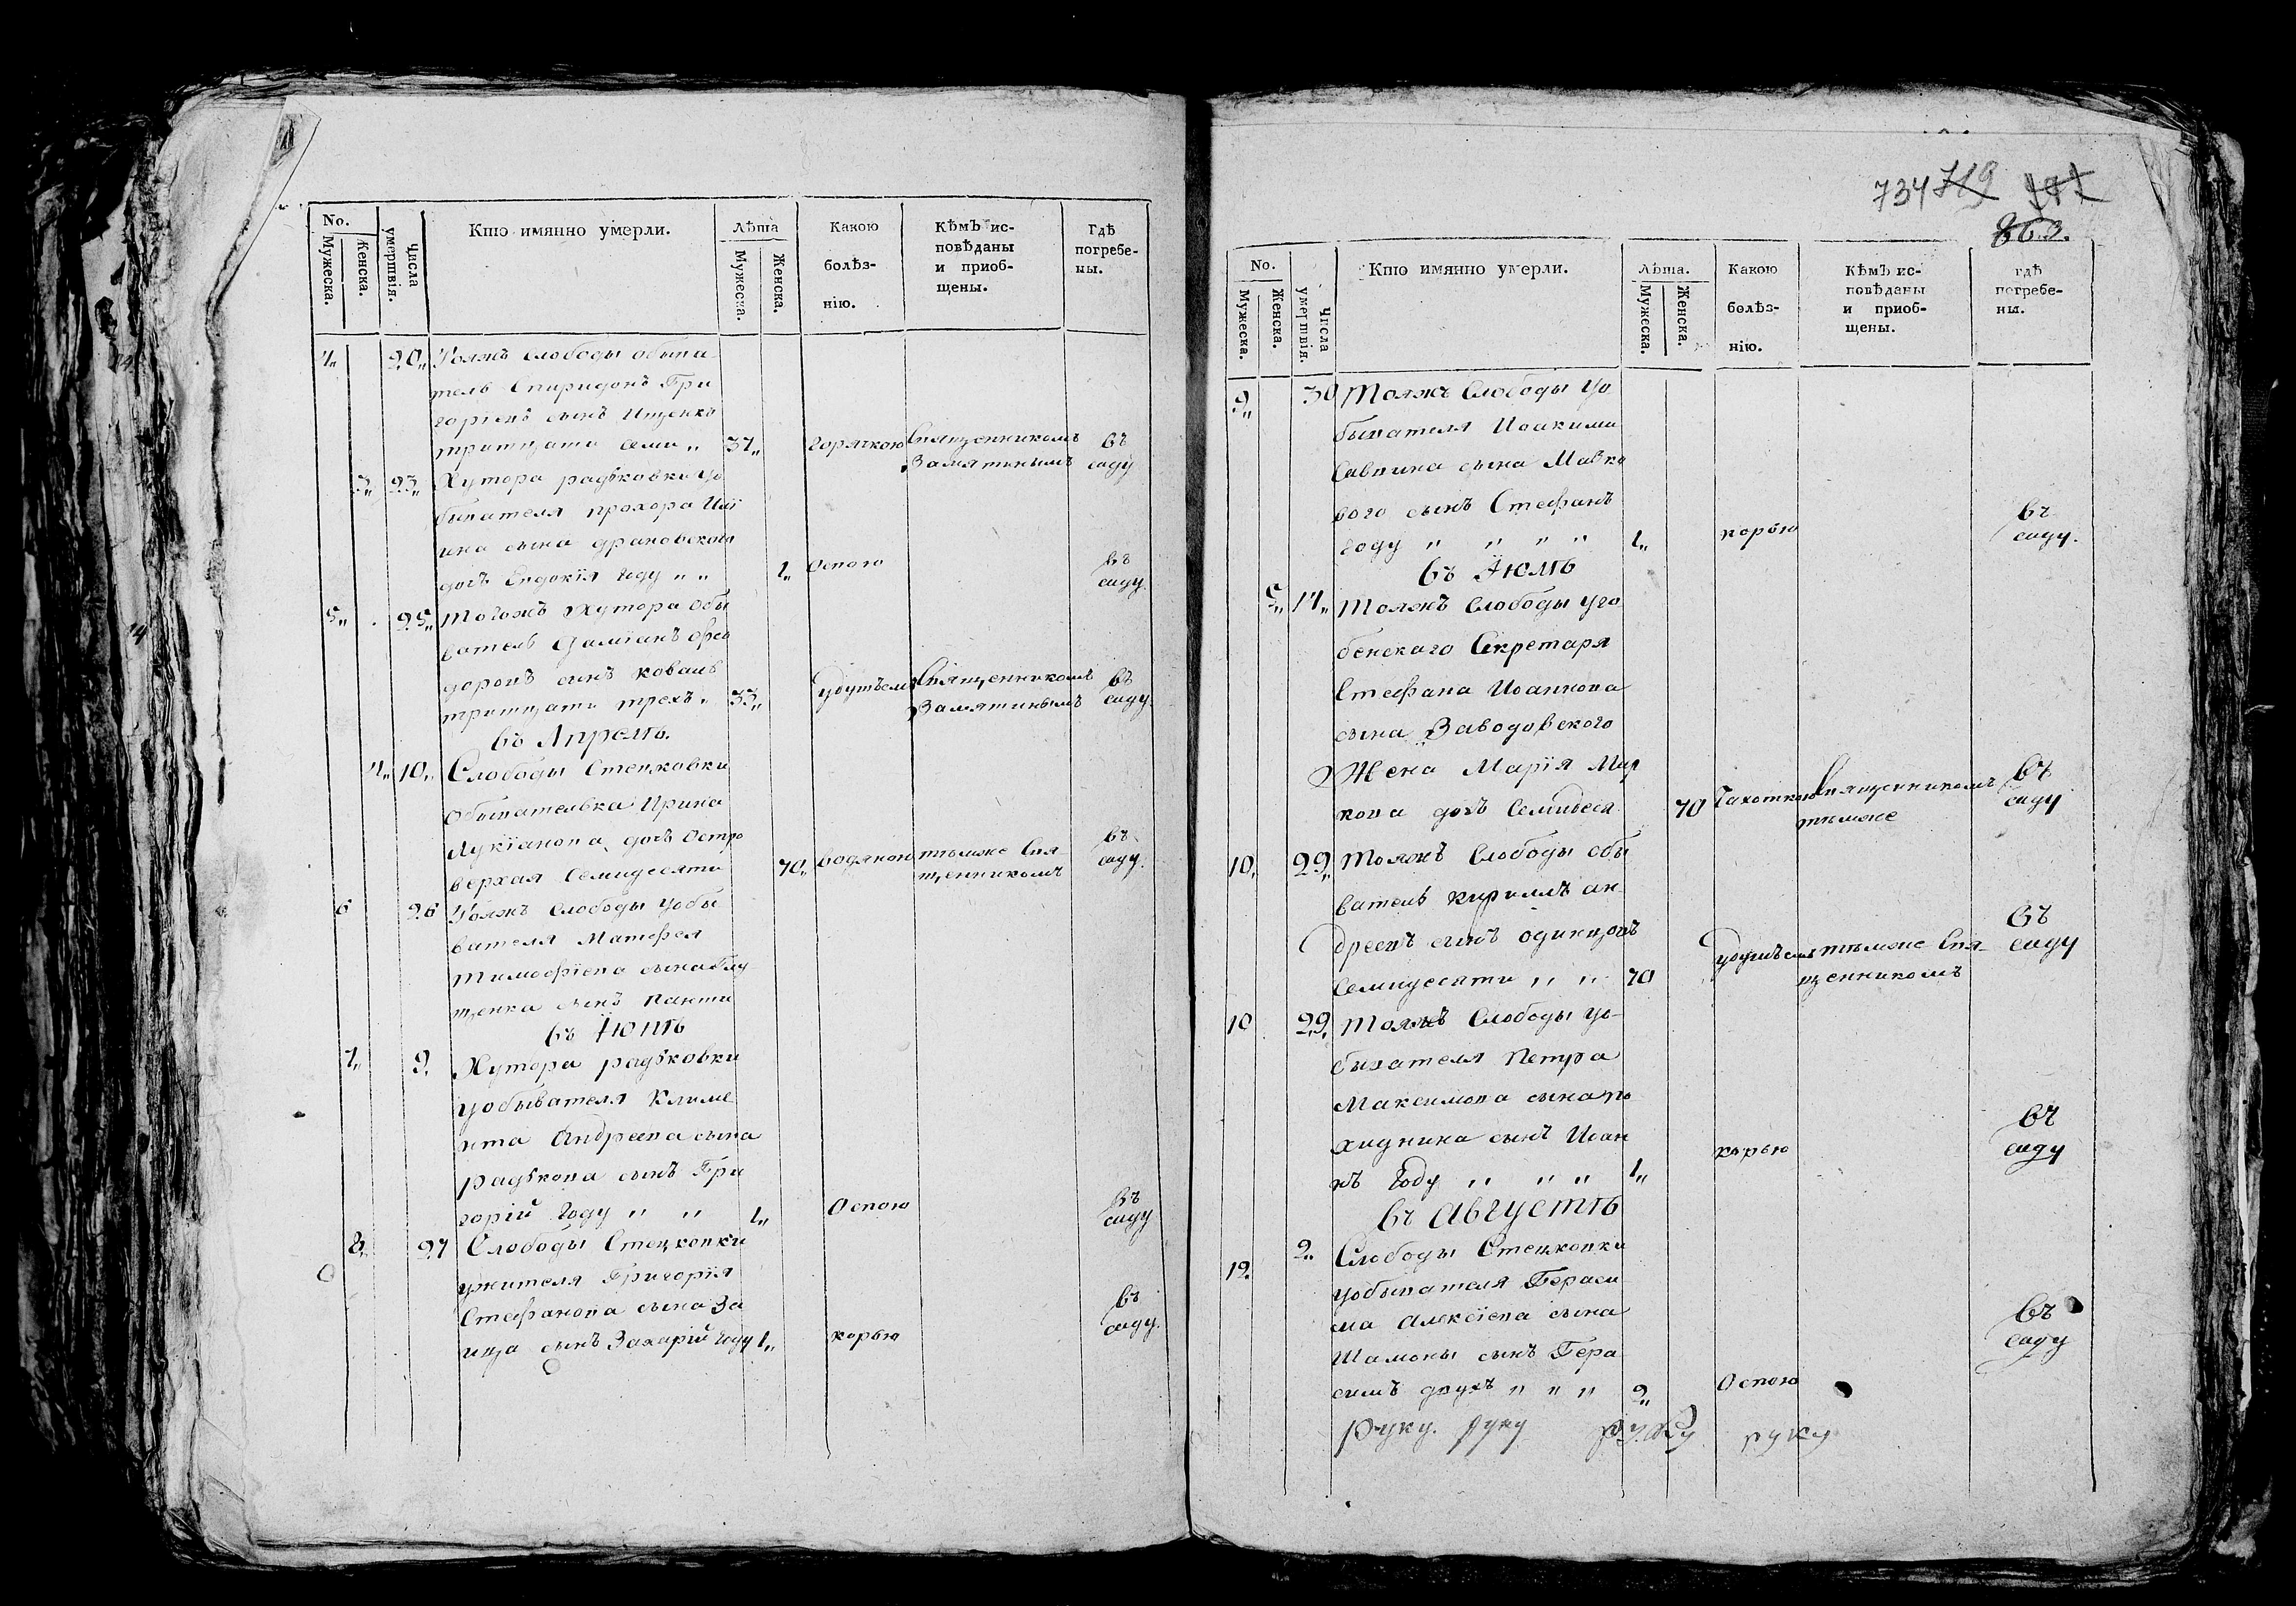 No.
Мужеска.
Женска.
Числа умертвія.
Кто имянно умерли.
Лѣта
Мужеска.
Женска.
Какою болѣзнію.
КѢмЪ исповѣданы и приобщены.
ГдѢ погребены.
4„ 20„ Тояжъ слободы обыва
тель Спиридонъ Гри
горіевъ сынъ Ищенко
тритцати семи „ 37„ горячкою Священникомъ въ
Замятнинымъ саду
3„ 23„ Хутора радковки уо
бывателя прохора
ина сына
дочь Евдокія году „ „ 1„ Оспою въ
саду.
5„ 25„ Тогожъ Хутора обы
ватель Даміанъ Фео
доровъ сынъ коваль
тритцати трехъ „ 33„ Священникомъ въ
Замятинымъ саду.
въ Апрелѣ.
4„ 10„ Слободы Стецковки
Обывателька Ирина
Лукіанова дочь Остро
верхая Семидесяти 70„ водяною тѣмже Свя-
щенникомъ въ саду.
6 26 Тояжъ Слободы уобы
вателя Матфея
Тимофѣева сына Глу
щенка сынъ
въ Іюнѣ
7„ 9. Хутора радковки
уобывателя Климе
нта Андреева сына
радкова сынъ Гри
горій году „ „ 1„ Оспою въ
саду
8„ 27 Слободы Стецковки
ужителя Григорія
Стефанова сына За
ица сынъ Захарій году 1„ корью въ
саду.
734 719
863.
No.
Мужеска.
Женска.
Числа умертвія.
Кто имянно умерли.
Лѣта.
Мужеска.
Женска.
Какою болѣзнію.
КѢмЪ исповѣданы и приобщены.
гдѢ погребены.
9„ 30 Тояжъ Слободы уо
бывателя Иоакима
Саввина сына Мавко
вого сынъ Стефанъ
году „ „ „ „ 1„ корью въ
саду.
въ Іюлѣ
5„ 17„ Тояжъ Слободы
Секретаря
Стефана Иоаннова
сына Заводовского
Жена Марія Мар
кова дочь Семидеся 70 Чахоткою Священникомъ въ
тѣмже саду
10„ 29„ Тояжъ Слободы обы
ватель Кириллъ ан
дреевъ сынъ одинцовъ
Семидесяти „ „ 70 тѣмже Свя-
щенникомъ въ саду
10 29. Тояжъ Слободы уо-
бывателя Петра
Максимова сына по
хиднина сынъ Иоан
нъ году „ „ „ 1„ корью въ
саду
въ Августѣ
12. 2„ Слободы Стецковки
уобывателя Гераси
ма Алексіева сына
Шамоны сынъ Гера
симъ двухъ „ „ „ 2„ Оспою въ
саду
руку. руку руку руку